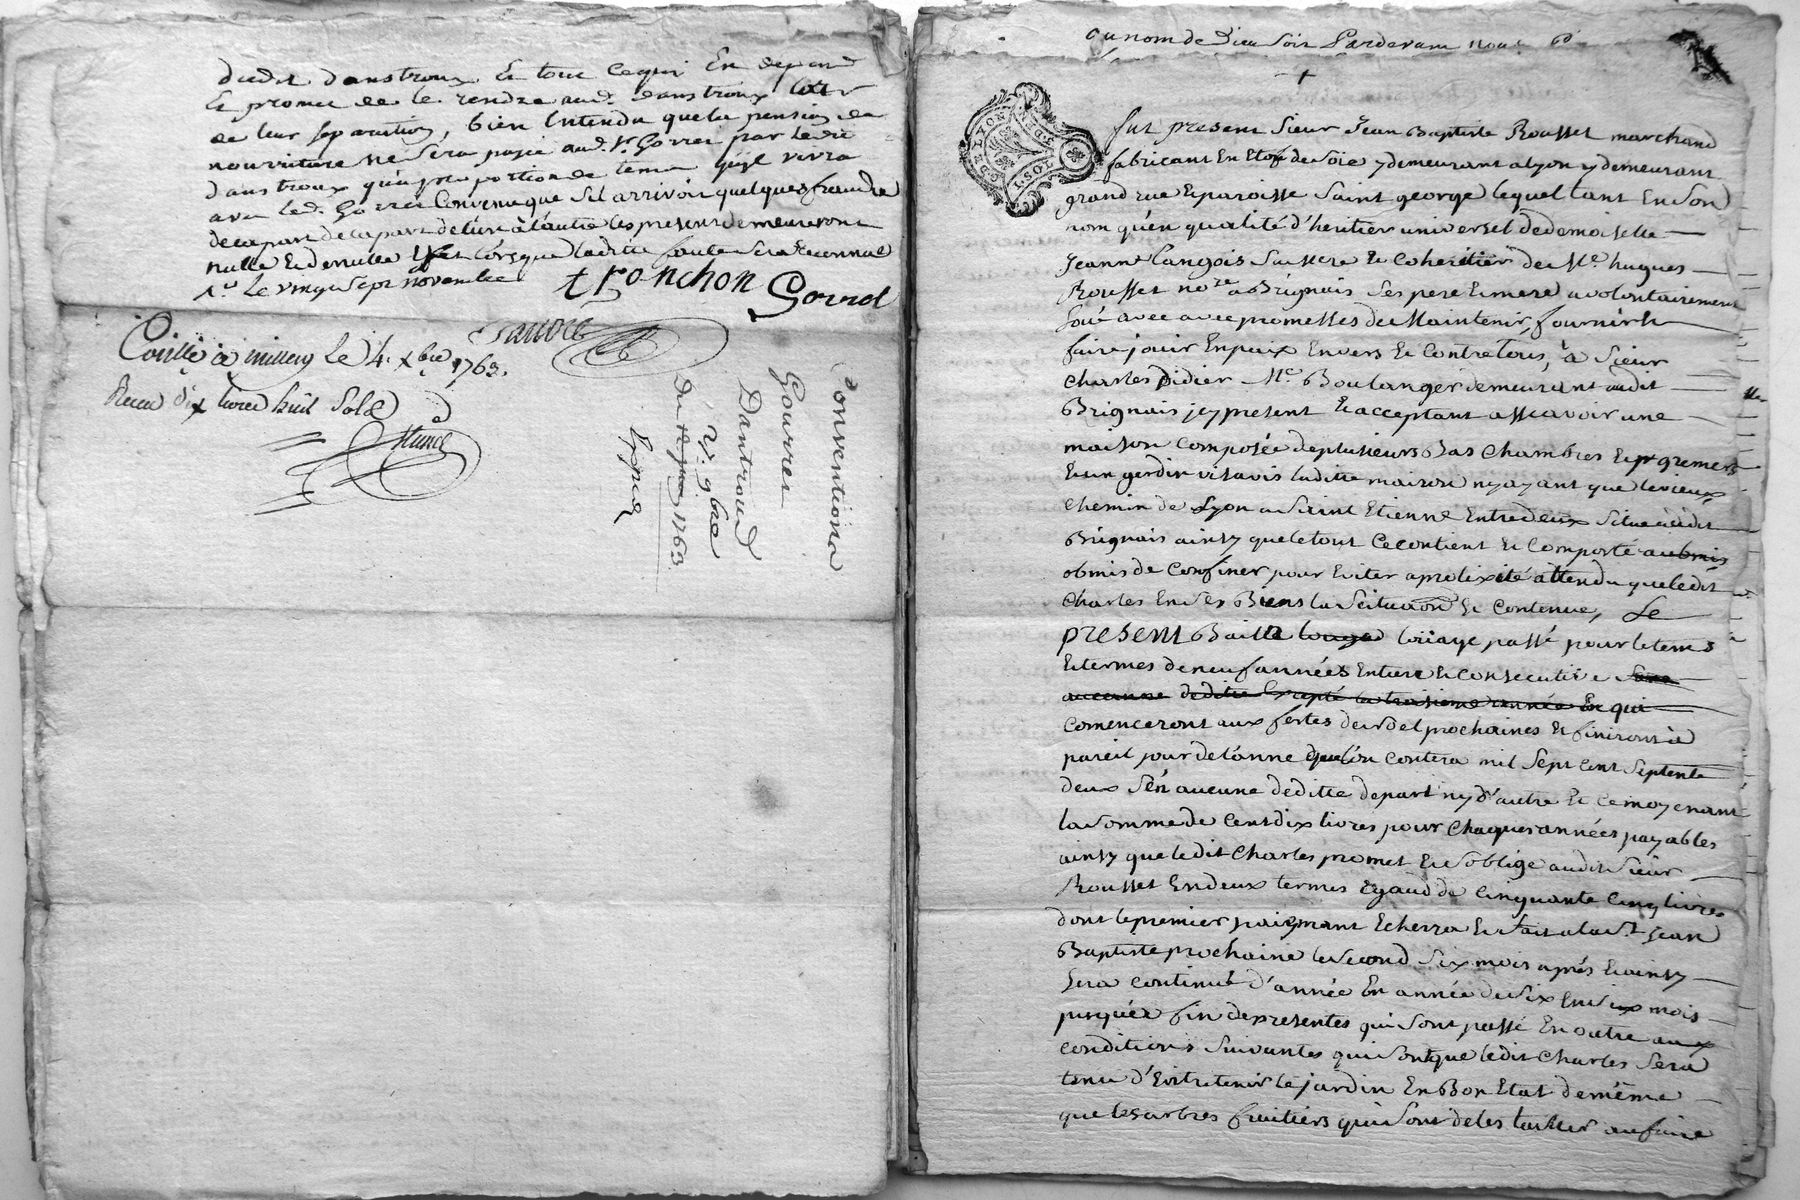 dudit danstroux Et tout cequi En depend
Et promet de le rendre aud. danstroux lors
de leur separation, bien Entendu que la pension de
nourriture ne sera payée aud. Sr. Gorret par ledit
danstroux qu'a proportion de tems qu'jl vivra
avec led. Convenu que sil arrivoit quelques fraude
de la part de l'un à l'autre les presentes demeureront
nulle Et de nulle lorsque laditte sera reconnue
le vingt sept novembre
tronchon Gorrel
Conllé à millery Le 4. Xbre 1763.
Recu dix livres huit sols
Conventions
Gourret
Dantroux
27. 9bre
1763
au nom de Dieu Soit Pardevant nous
G. DE LYON
fut present Sieur Jean Baptiste Rousset marchand
fabricant En Etof de Soie y demeurant a lyon y demeurant
grand rue Et paroisse Saint george lequel tant En Son
nom qu'en qualité d'heritier universel de demoiselle
Jeanne Langois Sa mere Et Coheritier de Me. hugues
Rousset nore. a Brignais Ses pere Et mere a volontairement
loué avec avec promesses de Maintenir, fournir Et
faire jouir En paix Envers Et Contre tous, à Sieur
Charles Didier Me. Boulanger demeurant audit
Brignais jcy present Et acceptant assavoir une
maison Composée de plusieurs Bas Chambres Et greniers
Et un gerdin visavis laditte maison ny ayant que le vieux
Chemin de Lyon a Saint Etienne Entredeux Situé audit
Brignais ainsy que le tout Ce contient Et Comporte
obmis de Confiner pour Eviter a prolixité attendu que ledit
Charles En Ses Biens la Scituation Et Contenue, Le
present Baille loüage passé pour le tems
Et termes de neuf années Entiere Et Consecutive
aucunne deditte Excepté la troisieme année En qui
Comenceront aux fertes de noel prochaines Et finiront à
pareil jour de l'anne que l'on Contera mil Sept Cent Septente
deux S'en aucune deditte de part ny d'autre Et Ce moyenant
la Somme de Cent dix livres pour Chaques années payables
ainsy que ledit Charles promet Et S'oblige audit Sieur
Rousset En deux termes Egaud de Cinquante Cinq livres
dont le premier paiement Echerra Et Sait a la St. Jean
Baptiste prochaine le Second Six mois après Et ainsy
Sera Continué d'année En année de Six En Six mois
jusquée fin de presentes qui Sont passé En outre aux
Conditions Suivantes qui Sont que ledit Charles Sera
tenu d'Entretenir le jardin En Bon Etat de même
que les arbres fruitiers qui Sont de les tailler